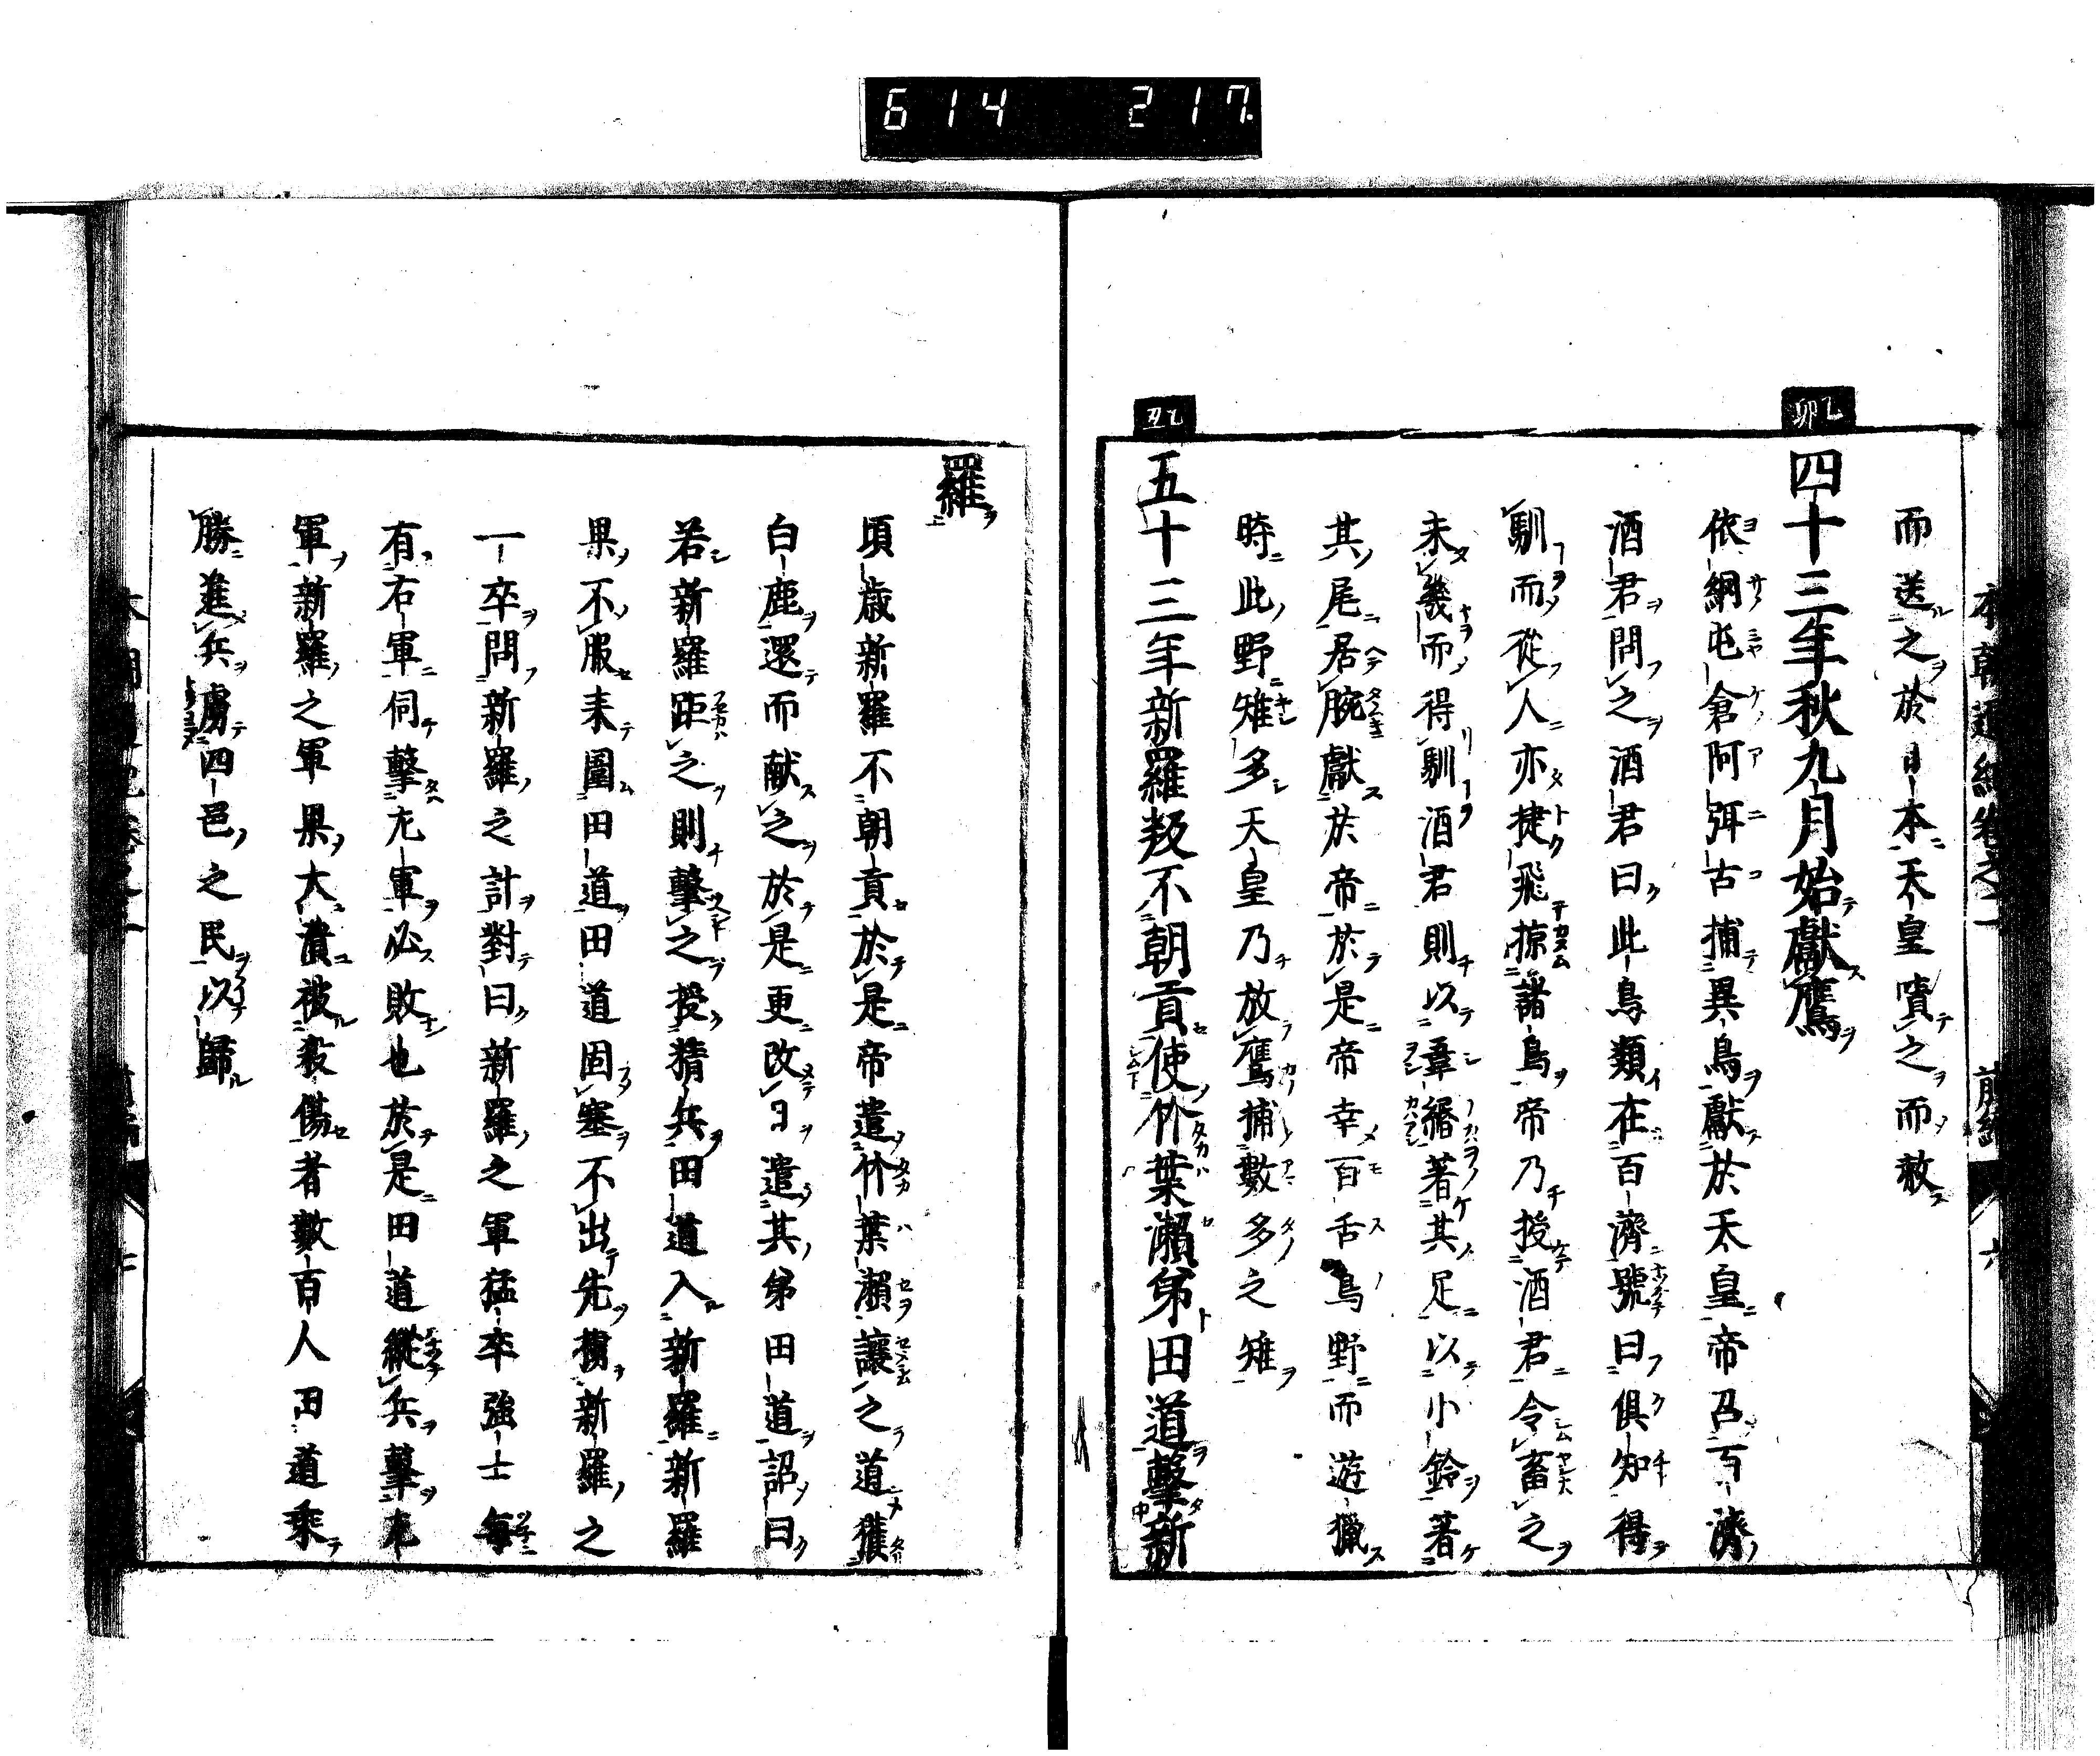 614 217
而送之於日本天皇嘖之而赦
乙卯
四十三年秋九月始獻鷹
依網屯倉阿弭古捕異鳥獻於天皇帝召百濟
酒君問之酒君曰此鳥類在百濟號曰俱知得
馴而從人亦捷飛掠諸鳥帝乃授酒君令畜之
未幾而得馴酒君則以韋緡著其足以小鈴著
其尾居腕獻於帝於是帝幸百舌鳥野而遊獵
時此野雉多天皇乃放鷹捕數多之雉
乙丑
五十三年新羅叛不朝貢使竹葉瀨弟田道擊新
羅
頃歳新羅不朝貢於是帝遣竹葉瀨讓之道獲
白鹿還而献之於是更改日遣其弟田道詔曰
若新羅距之則擊之授精兵田道入新羅新羅
果不服来圍田道田道固塞不出先擄新羅之
一卒問新羅之計對曰新羅之軍猛卒強士每
有右軍伺擊左軍必敗也於是田道縱兵擊左
軍新羅之軍果大潰被殺傷者數百人田道乘
勝進兵虜四邑之民以歸